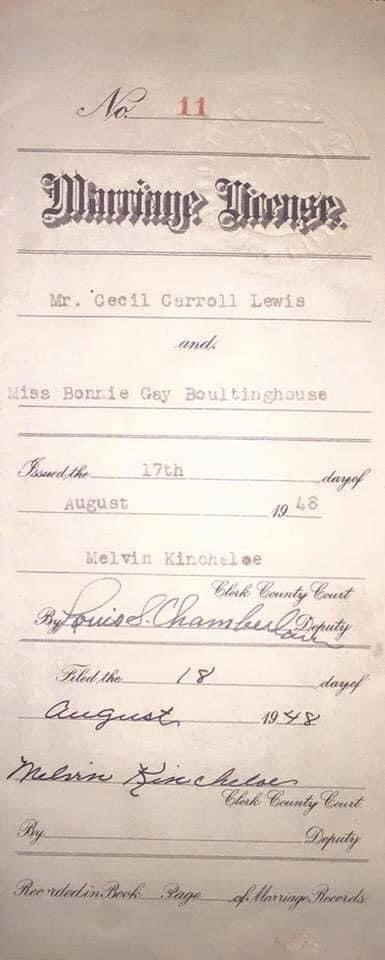 No. 11
Marriage License.
Mr. Cecil Carroll Lewis
and
Miss Bonnie Gay Boultinghouse
Issued the 17th day of
August 1948
Melvin Kincheloe
Clerk County Court
By Louis S. Chamberlain Deputy
Filed the 18 day of
August 1948
Melvin Kincheloe
Clerk County Court
By Deputy
Recorded in Book Page of Marriage Records.